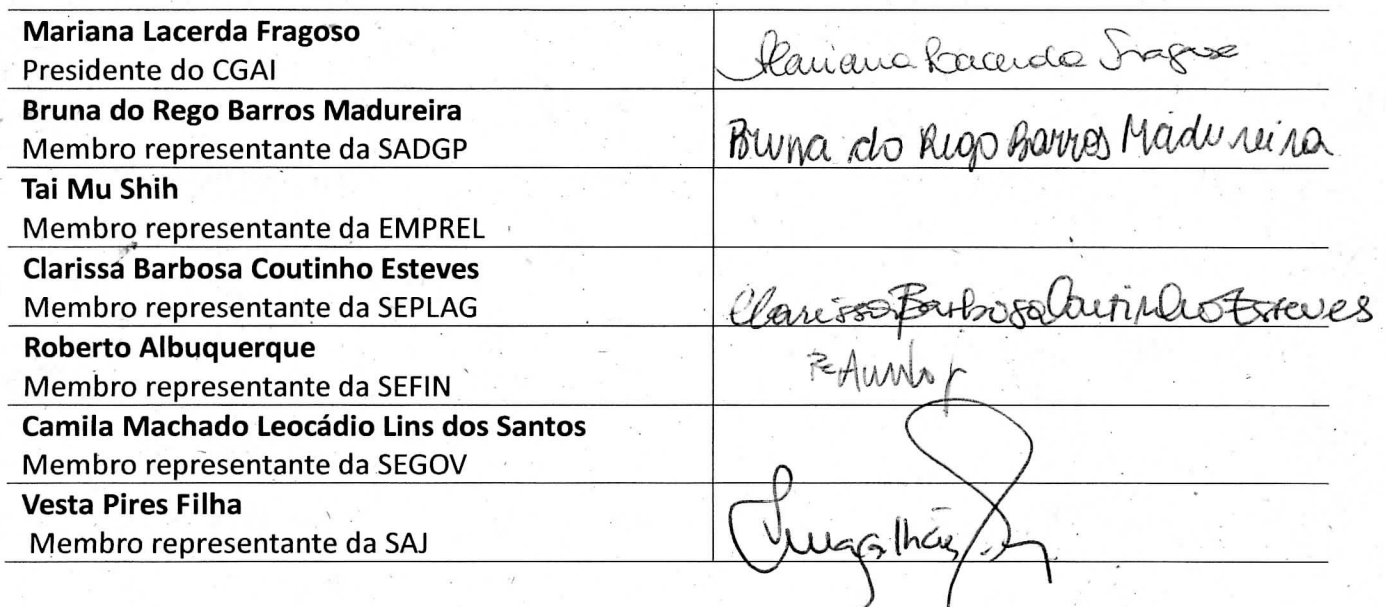 Mariana Lacerda Fragoso
Presidente do CGAI
Mariana Lacerda Fragoso
Bruna do Rego Barros Madureira
Membro representante da SADGP
Bruna do Rego Barros Madureira
Tai Mu Shih
Membro representante da EMPREL
Clarissa Barbosa Coutinho Esteves
Membro representante da SEPLAG
Clarissa Barbosa Coutinho Esteves
Roberto Albuquerque
Membro representante da SEFIN
Camila Machado Leocádio Lins dos Santos
Membro representante da SEGOV
Vesta Pires Filha
Membro representante da SAJ